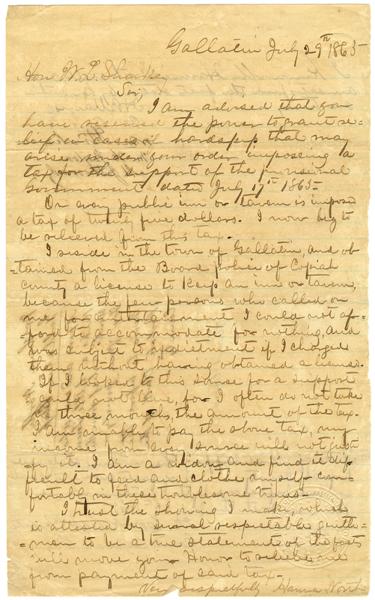 Gallatin July 29th 1865
Hon W. L. Sharkey
Sir
I am advised that you
have reserved the power to grant re-
lief in cases of hardship that may
arise under your order imposing a
tax for the support of the provisional
Government dated July 17th 1865-
On every public inn or tavern is impose
a tax of twenty five dollars. I now beg to
be relieved from this tax.
I reside in the town of Gallatin, and ob-
-tained from the Board police of Copiah
county a license to keep an inn or tavern,
because the few persons who called on
me for entertainment I could not af-
-ford to accommodate for nothing, and
was subject to indictment if I charged
them without having obtained a license.
If I looked to this source for a support
I could not live, for I often do not take
in three months, the amount of the tax.
I am unable to pay the above tax, my
income from every source will not just-
ify it. I am a widow and find it dif-
ficult to feed and clothe myself com-
fortably in these troublesome times-
I trust the showing I make, which
is attested by several respectable gentle-
-men to be a true statement of the facts
will move your Honor to relieve me
from payment of said tax.
Very respectfully